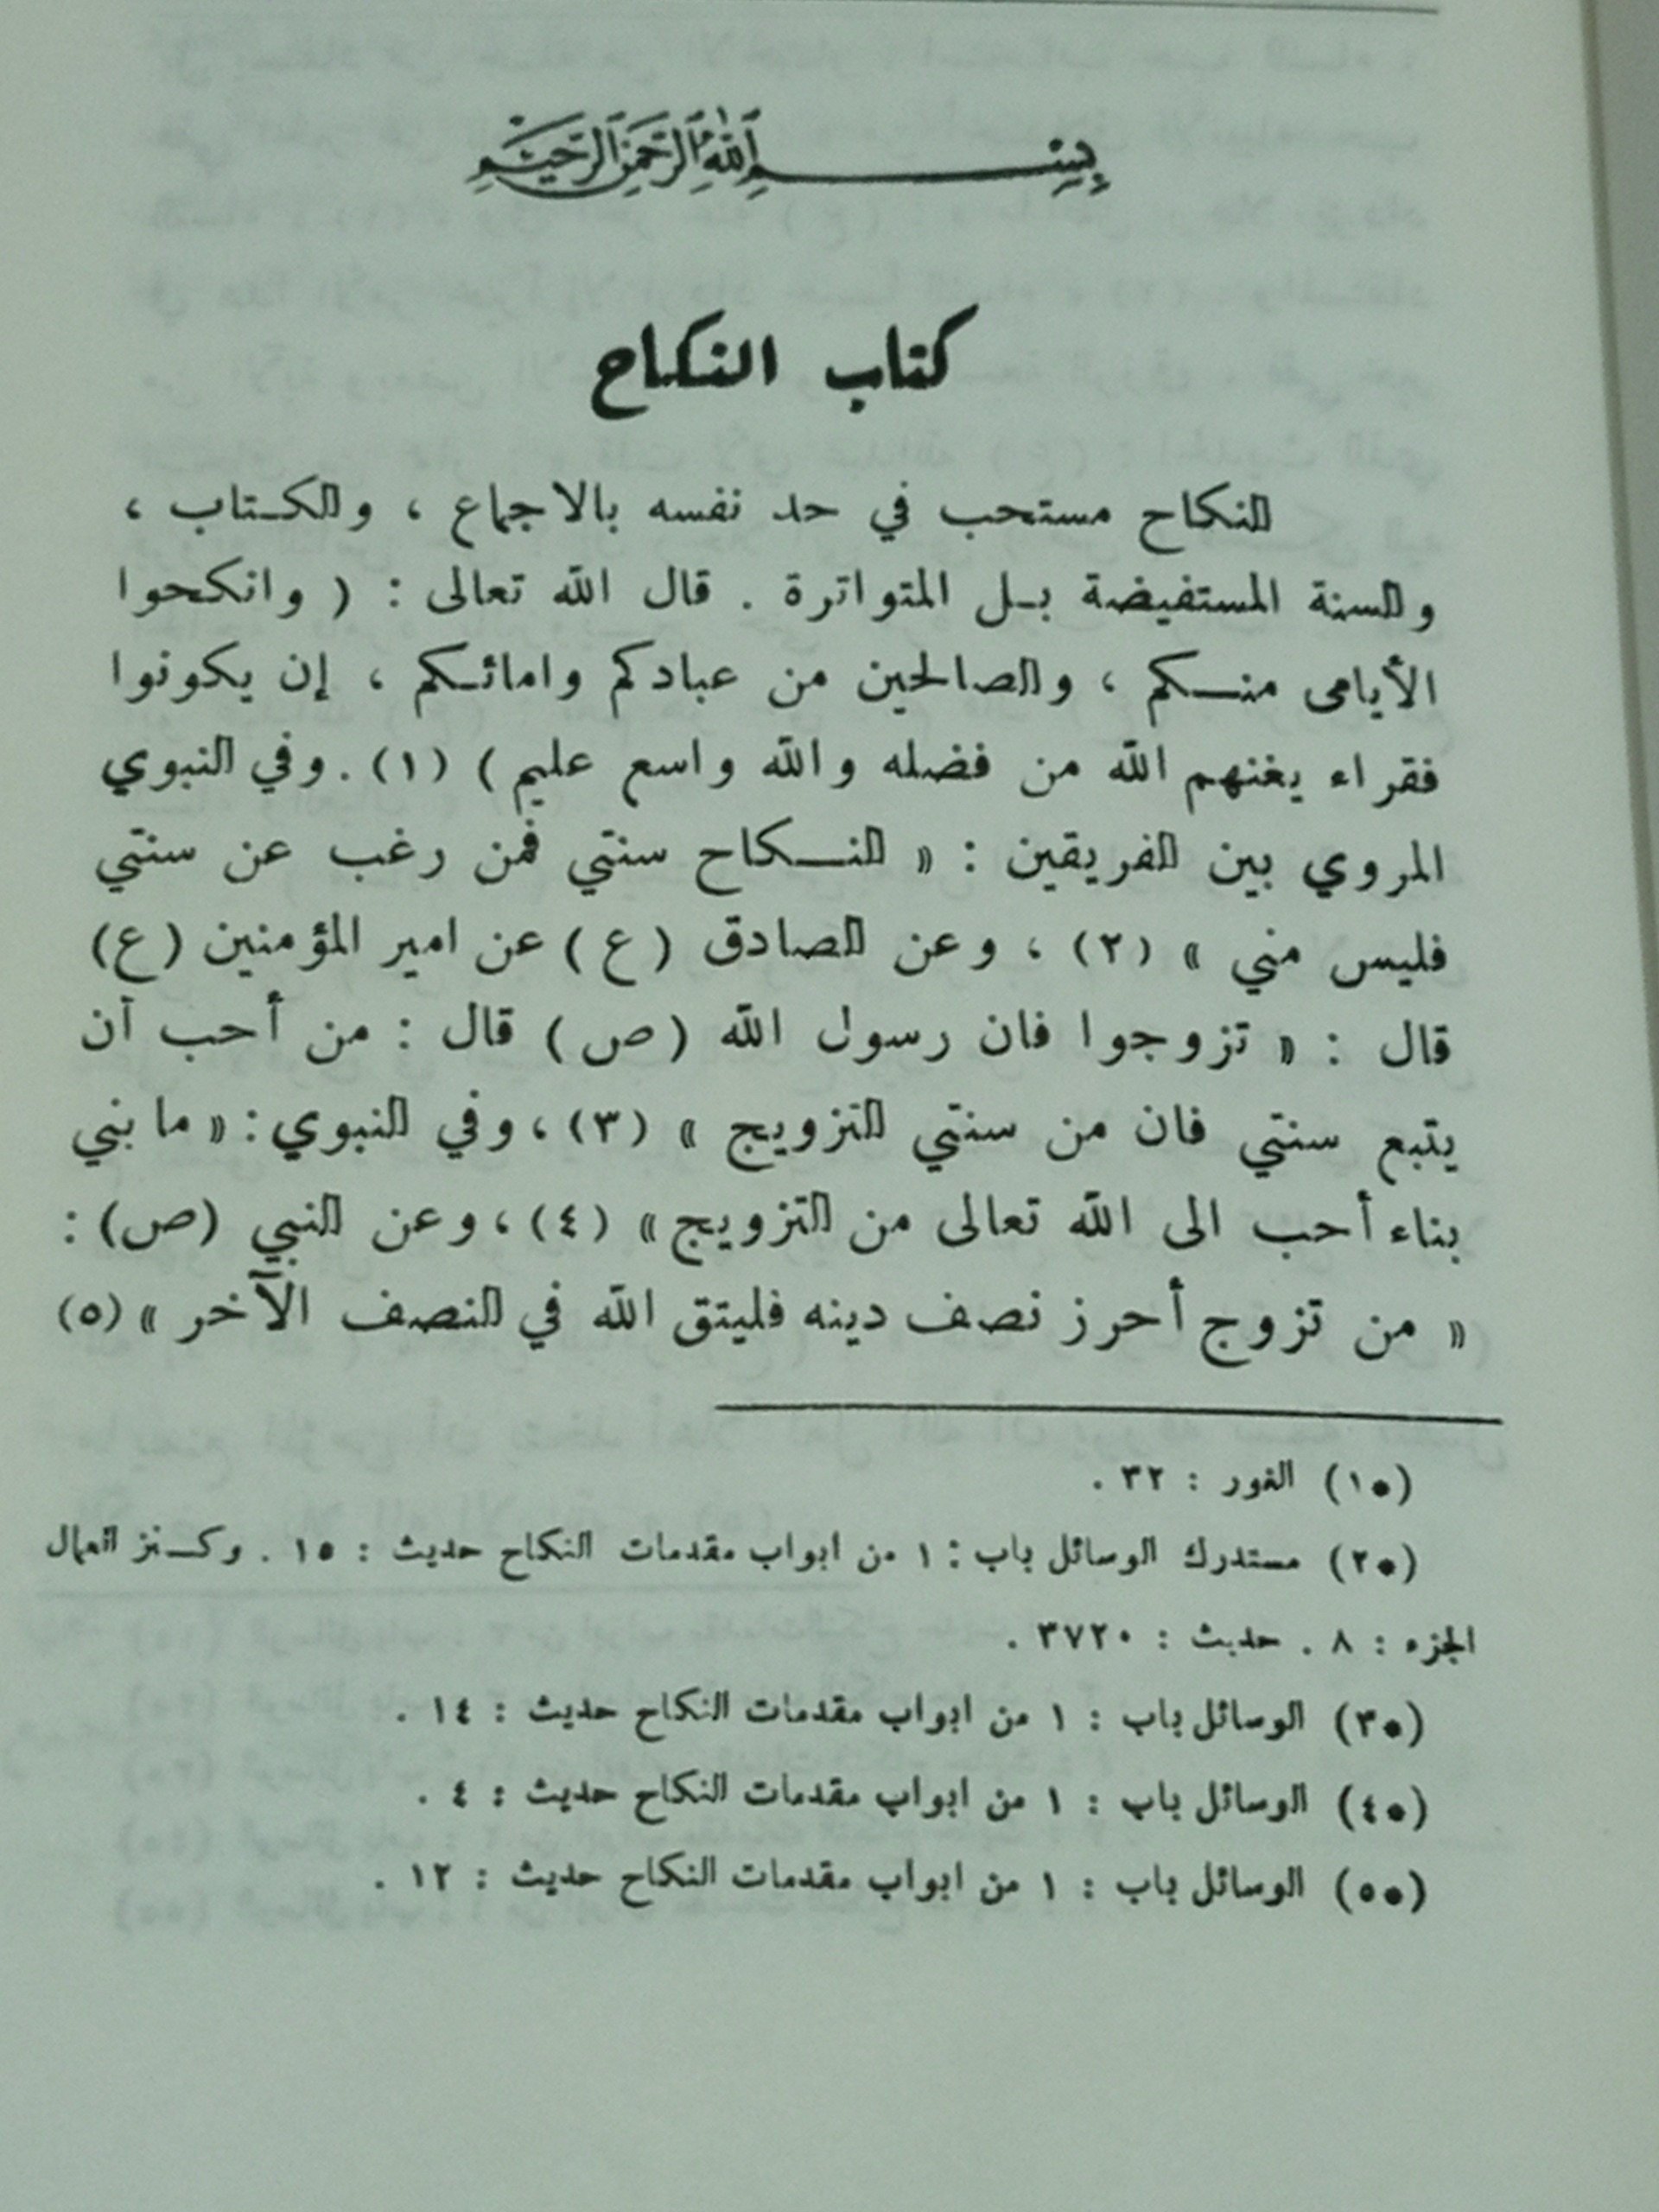 بسم الله الرحمن الرحيم
كتاب النكاح
النكاح مستحب في حد نفسه بالاجماع ، والكتاب ،
والسنة المستفيضة بل المتواترة . قال الله تعالى : ( وانكحوا
الأيامى منكم ، والصالحين من عبادكم وامائكم ، إن يكونوا
فقراء يغنهم الله من فضله والله واسع عليم ) (١) . وفي النبوي
المروي بين الفريقين : « النكاح سنتي فمن رغب عن سنتي
فليس مني » (٢) ، وعن الصادق (ع) عن امير المؤمنين (ع)
قال : « تزوجوا فان رسول الله (ص) قال : من أحب أن
يتبع سنتي فان من سنتي التزويج » (٣) ، وفي النبوي : « ما بني
بناء أحب الى الله تعالى من التزويج » (٤) ، وعن النبي (ص) :
« من تزوج أحرز نصف دينه فليتق الله في النصف الآخر » (٥)
(*١) النور : ٣٢ .
(*٢) مستدرك الوسائل باب : ١ من ابواب مقدمات النكاح حديث : ١٥ . وكنز العمال
الجزء : ٨ . حديث : ٣٧٢٠ .
(*٣) الوسائل باب : ١ من ابواب مقدمات النكاح حديث : ١٤ .
(*٤) الوسائل باب : ١ من ابواب مقدمات النكاح حديث : ٤ .
(*٥) الوسائل باب : ١ من ابواب مقدمات النكاح حديث : ١٢ .